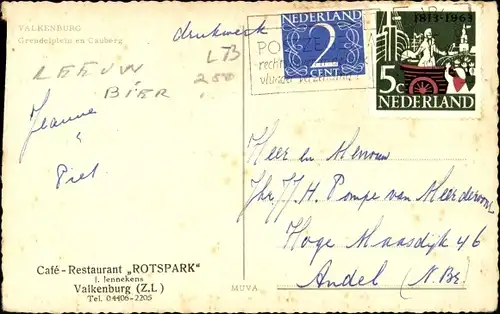 VALKENBURG
Grendelplein en Cauberg
drukwerk
L 73
250
LEEUW
BIER
Jeanne
"
Piet
NEDERLAND
2
CENT
1813-1963
5c
NEDERLAND
PO
rech
Heer en Mevrouw
Jhr. J. H. Pompe van Meerdervoort
Hoge Maasdijk 46
Andel (N.Br.)
Café-Restaurant „ROTSPARK"
f. Jennekens
Valkenburg (Z.L)
Tel. 04406-2205
MUVA